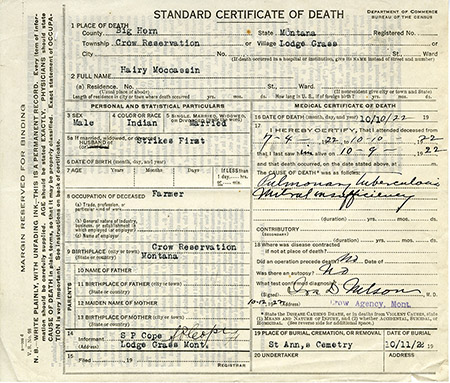 STANDARD CERTIFICATE OF DEATH
DEPARTMENT OF COMMERCE
BUREAU OF THE CENSUS
1 PLACE OF DEATH
County Big Horn State Montana Registered No.
Township Crow Reservation or Village Lodge Grass
City No. St., Ward
(If death occurred in a hospital or institution, give its NAME instead of street and number)
2 FULL NAME Hairy Moccassin
(a) Residence. No. St., Ward.
(Usual place of abode) (If nonresident give city or town and State)
Length of residence in city or town where death occurred yrs. mos. ds. How long in U. S., if of foreign birth? yrs. mos. ds.
PERSONAL AND STATISTICAL PARTICULARS
3 SEX 4 COLOR OR RACE 5 SINGLE, MARRIED, WIDOWED,
Male Indian Married
5a If married, widowed, or divorced
HUSBAND of Strikes First
6 DATE OF BIRTH (month, day, and year)
7 AGE Years Months Days If LESS than
1 day, hrs.
or min.
8 OCCUPATION OF DECEASED
(a) Trade, profession, or
particular kind of work Farmer
(b) General nature of industry,
business, or establishment in
which employed (or employer)
(c) Name of employer
9 BIRTHPLACE (city or town) Crow Reservation
(State or country) Montana
PARENTS
10 NAME OF FATHER
11 BIRTHPLACE OF FATHER (city or town)
(State or country)
12 MAIDEN NAME OF MOTHER
13 BIRTHPLACE OF MOTHER (city or town)
(State or country)
14
Informant S P Cope
(Address) Lodge Grass Mont.
15
Filed , 19
REGISTRAR
MEDICAL CERTIFICATE OF DEATH
16 DATE OF DEATH (month, day, and year) 10/10/22 19
17
I HEREBY CERTIFY, That I attended deceased from
7-4, 1922, to 10-10, 1922
that I last saw him alive on 10-9-, 1922
and that death occurred, on the date stated above, at m.
The CAUSE OF DEATH* was as follows:
Pulmonary tuberculosis
Mitral insufficiency
(duration) yrs. mos. ds.
CONTRIBUTORY
(Secondary)
(duration) yrs. mos. ds.
18 Where was disease contracted
if not at place of death?
Did an operation precede death? No Date of
Was there an autopsy? No
What test confirmed diagnosis?
(Signed) Nelson, M. D.
(Address) Crow Agency, Mont.
* State the DISEASE CAUSING DEATH, or in deaths from VIOLENT CAUSES, state
(1) MEANS AND NATURE OF INJURY, and (2) whether ACCIDENTAL, SUICIDAL, or
HOMICIDAL. (See reverse side for additional space.)
19 PLACE OF BURIAL, CREMATION, OR REMOVAL DATE OF BURIAL
St Ann,s Cemetry 10/11/2 19
20 UNDERTAKER ADDRESS
MARGIN RESERVED FOR BINDING
N. B.—WRITE PLAINLY, WITH UNFADING INK—THIS IS A PERMANENT RECORD. Every item of information should be carefully supplied. AGE should be stated EXACTLY. PHYSICIANS should state
CAUSE OF DEATH in plain terms, so that it may be properly classified. Exact statement of OCCUPATION is very important. See instructions on back of certificate.